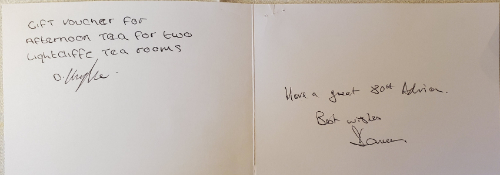 GIFT VOUCHER FOR
AFTERNOON TEA FOR TWO
LIGHTCLIFFE TEA ROOMS
D.
Have a great 80th Adrian.
Best wishes